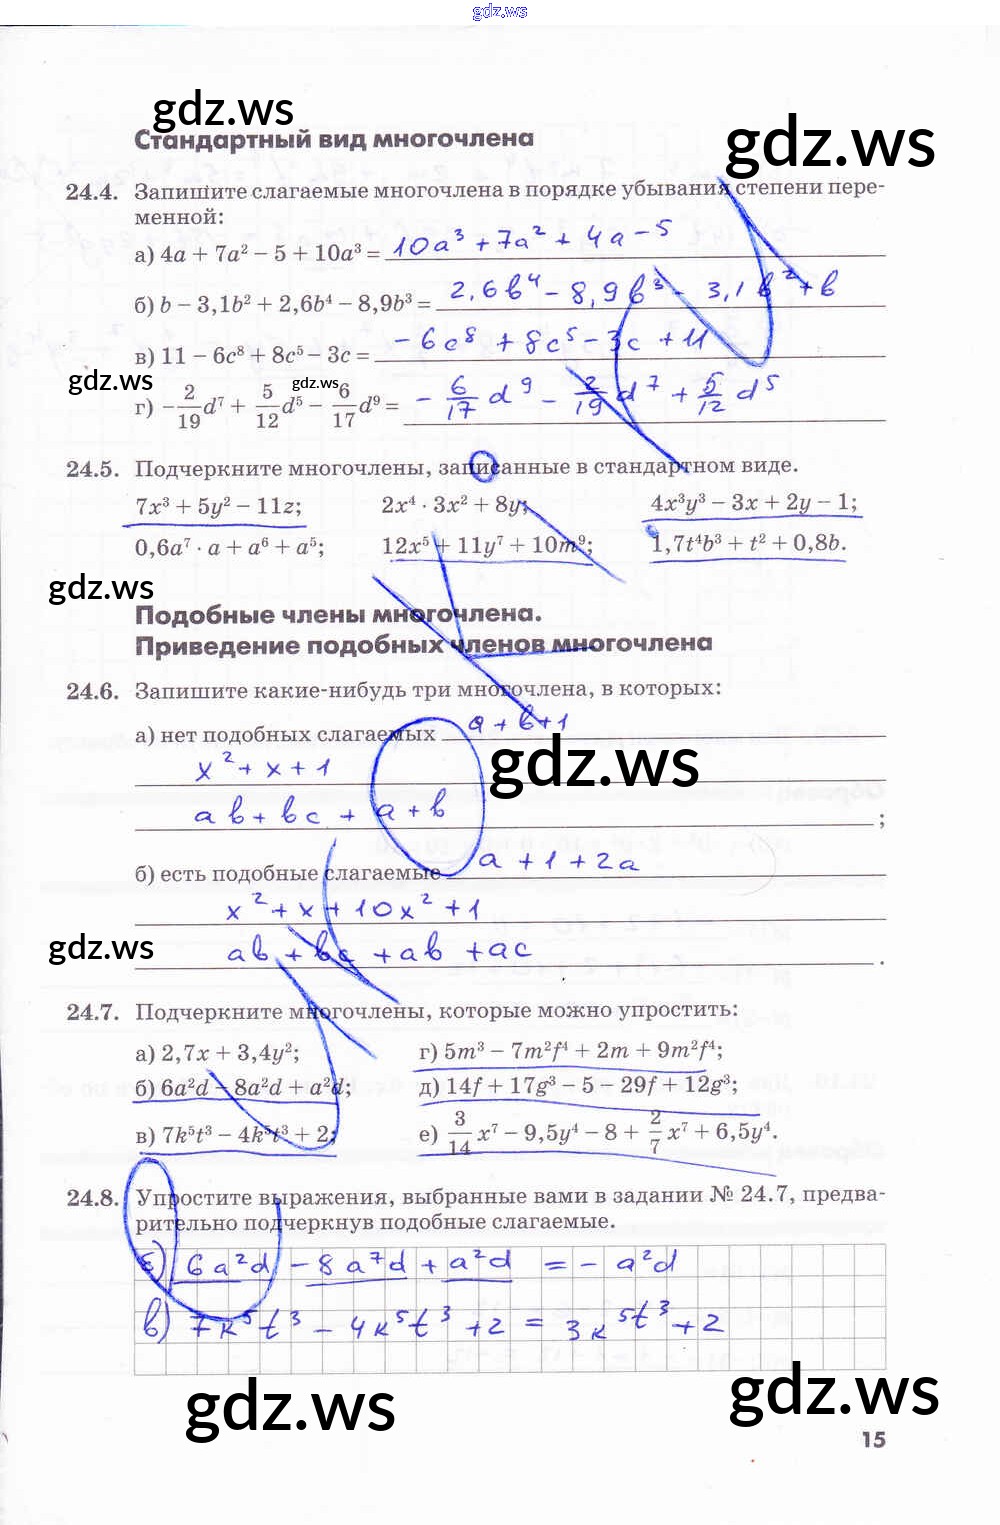 gdz.ws
gdz.ws
gdz.ws
Стандартный вид многочлена
24.4. Запишите слагаемые многочлена в порядке убывания степени пере-
менной:
а) 4a + 7a² − 5 + 10a³ = 10a³ + 7a² + 4a − 5
б) b − 3,1b² + 2,6b⁴ − 8,9b³ = 2,6b⁴ − 8,9b³ − 3,1b² + b
в) 11 − 6c⁸ + 8c⁵ − 3c = −6c⁸ + 8c⁵ − 3c + 11
gdz.ws gdz.ws
г) −2/19 d⁷ + 5/12 d⁵ − 6/17 d⁹ = −6/17 d⁹ − 2/19 d⁷ + 5/12 d⁵
24.5. Подчеркните многочлены, записанные в стандартном виде.
7x³ + 5y² − 11z; 2x⁴ · 3x² + 8y; 4x³y³ − 3x + 2y − 1;
0,6a⁷ · a + a⁶ + a⁵; 12x⁵ + 11y⁷ + 10m⁹; 1,7t⁴b³ + t² + 0,8b.
gdz.ws
Подобные члены многочлена.
Приведение подобных членов многочлена
24.6. Запишите какие-нибудь три многочлена, в которых:
а) нет подобных слагаемых a + b + 1
gdz.ws
x² + x + 1
ab + bc + a + b ;
б) есть подобные слагаемые a + 1 + 2a
x² + x + 10x² + 1
gdz.ws
ab + bc + ab + ac .
24.7. Подчеркните многочлены, которые можно упростить:
а) 2,7x + 3,4y²; г) 5m³ − 7m²f⁴ + 2m + 9m²f⁴;
б) 6a²d − 8a²d + a²d; д) 14f + 17g³ − 5 − 29f + 12g³;
в) 7k⁵t³ − 4k⁵t³ + 2; е) 3/14 x⁷ − 9,5y⁴ − 8 + 2/7 x⁷ + 6,5y⁴.
24.8. Упростите выражения, выбранные вами в задании № 24.7, предва-
рительно подчеркнув подобные слагаемые.
б) 6a²d − 8a²d + a²d = − a²d
в) 7k⁵t³ − 4k⁵t³ + 2 = 3k⁵t³ + 2
gdz.ws
gdz.ws
15